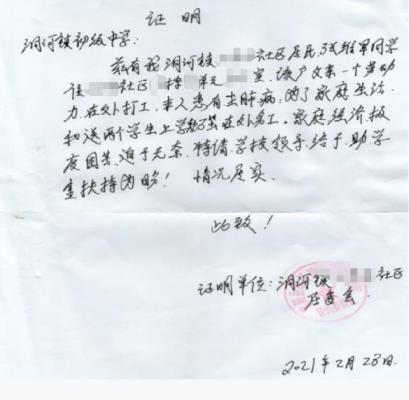 证明
洞河镇初级中学:
兹有我洞河镇 社区居民 军同学
该 社区 栋 单元 室. 该户父亲一个劳动
力,在外打工,本人患有尘肺病,为了家庭生活
和送两个学生上学 在外务工。家庭经济极
度困苦,迫于无奈.特请学校领导给予助学
金扶持为盼! 情况属实.
此致!
证明单位:洞河镇 社区
居委会
2021年2月28日.